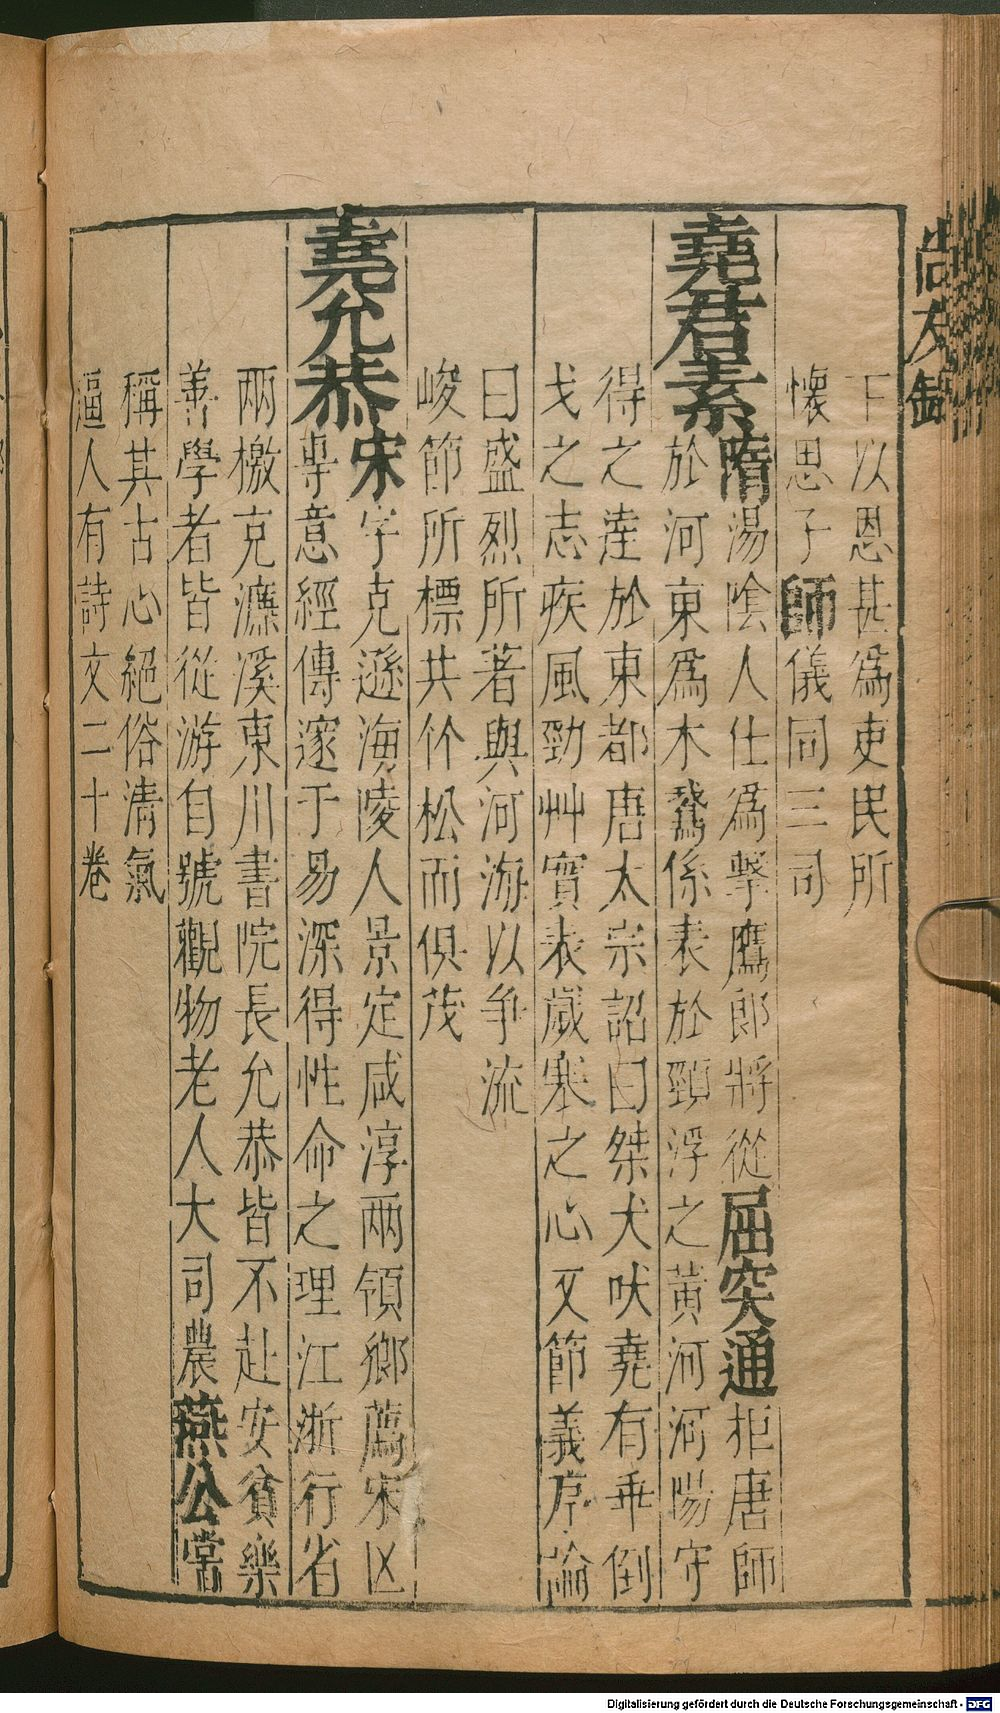 尚友錄
下以恩甚爲吏民所
懷思子師儀同三司
堯君素隋湯陰人仕爲擊鷹郎將從屈突通拒唐師
於河東爲木鵞係表於頸浮之黃河河陽守
得之達於東都唐太宗詔曰桀犬吠堯有乖倒
戈之志疾風勁艸實表歲寒之心又節義序論
曰盛烈所著與河海以爭流
峻節所標共竹松而俱茂
堯允恭宋字克遜海陵人景定咸淳兩領鄉薦宋亡
專意經傳邃于易深得性命之理江浙行省
兩檄克濂溪東川書院長允恭皆不赴安貧樂
善學者皆從游自號觀物老人大司農燕公常
稱其古心絕俗清氣
逼人有詩文二十卷
Digitalisierung gefördert durch die Deutsche Forschungsgemeinschaft - DFG